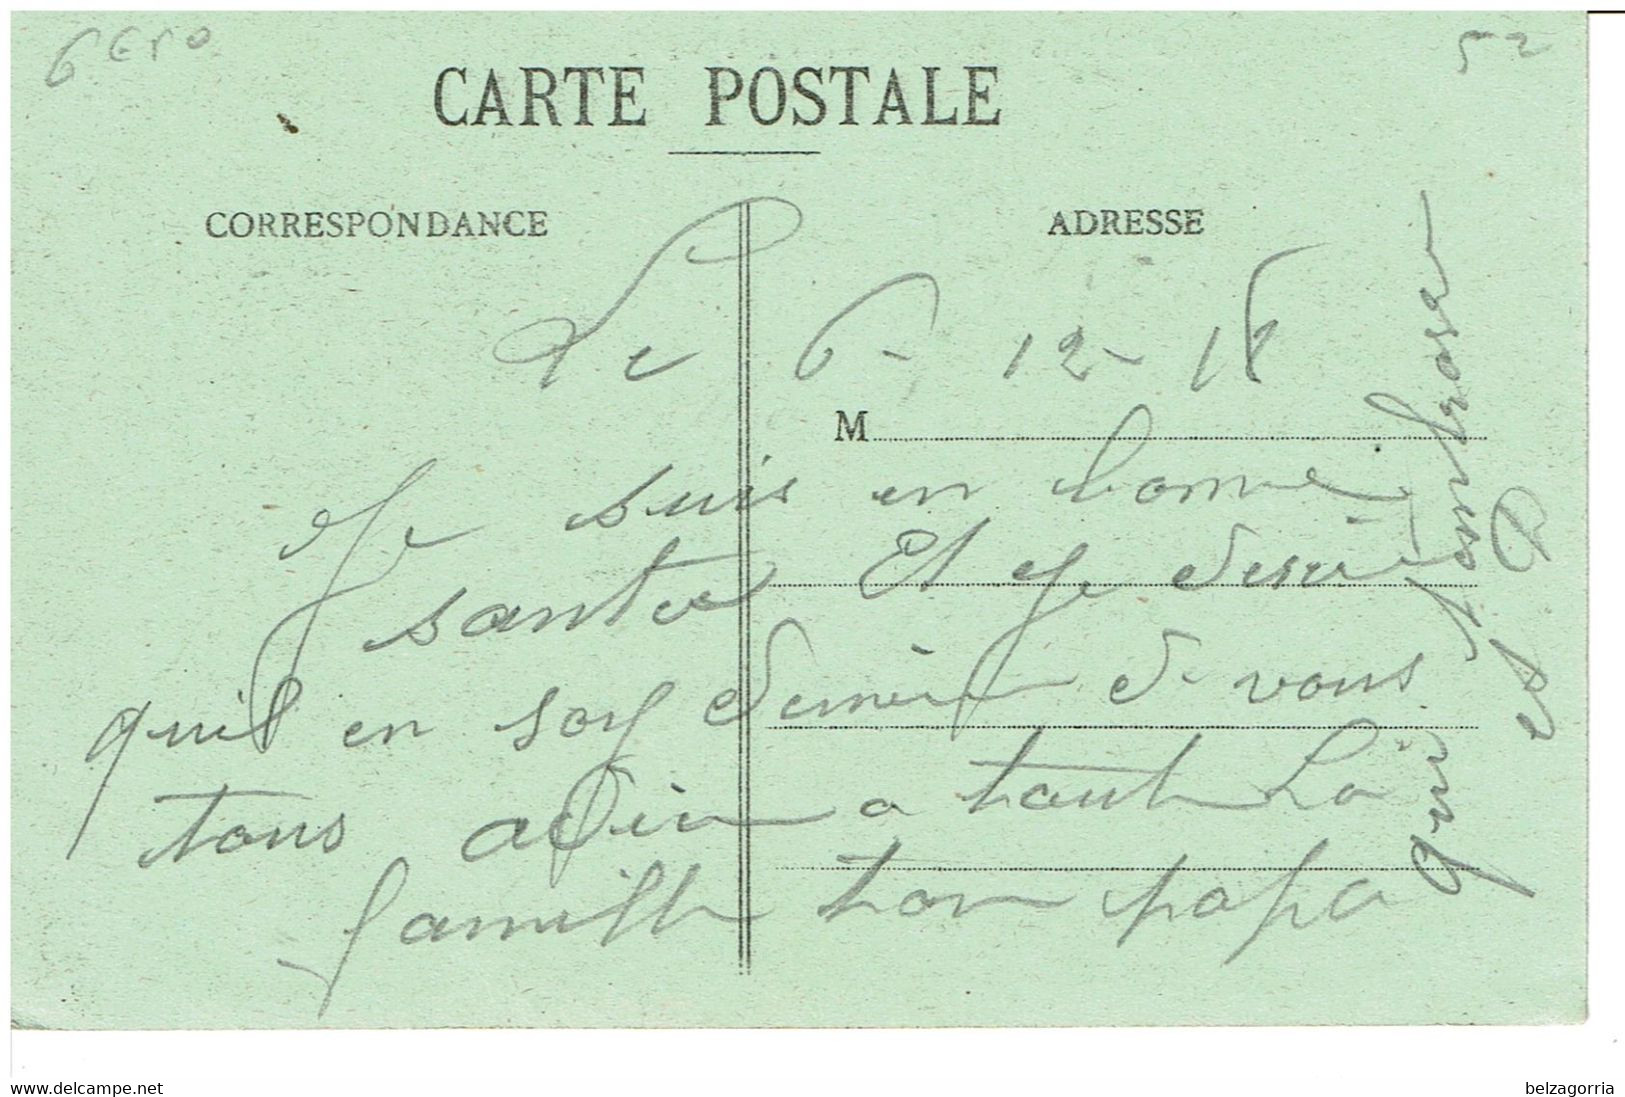 6€50
52
CARTE POSTALE
CORRESPONDANCE
ADRESSE
Le 6-12-18
M
Je suis en bonne
sante Et je desire
quil en soy de meme de vous
tous adieu a toute La
famille ton papa
qui
et
www.delcampe.net
belzagorria